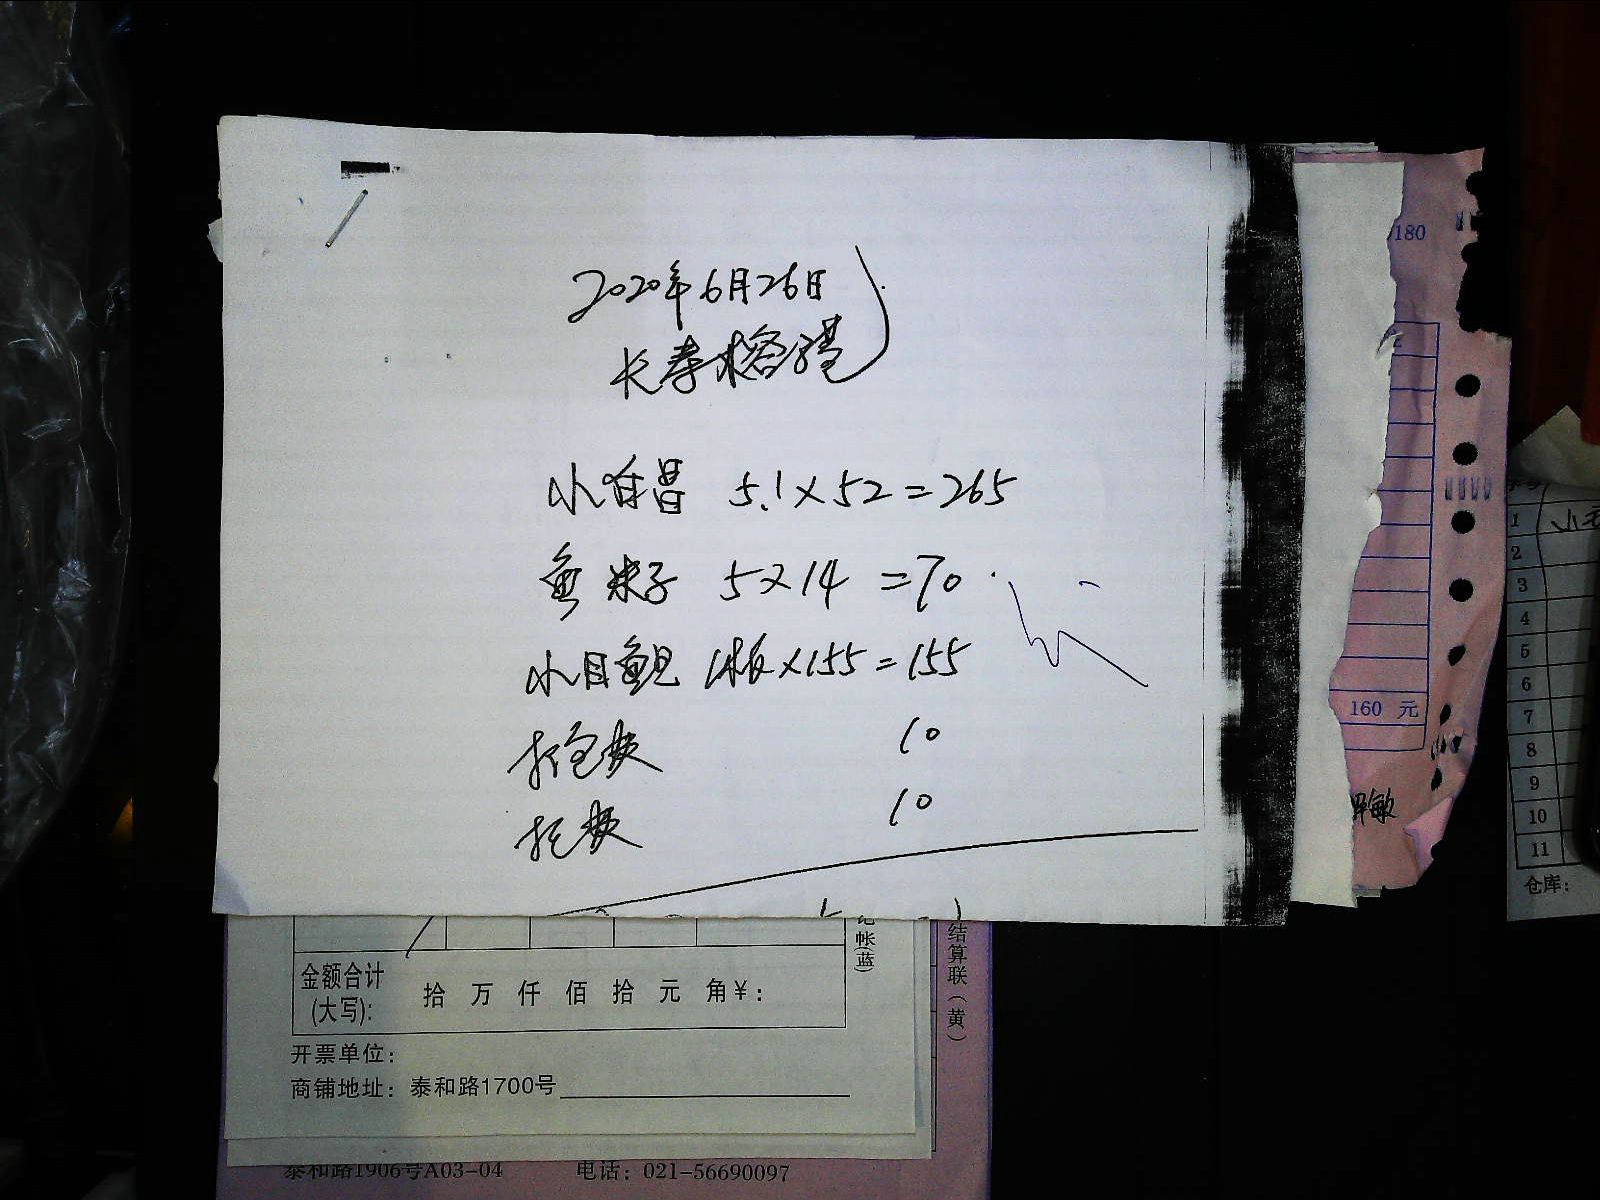 2020年6月26日
长寿榕港
小白昌 5.1×52=265
鱼米子 5×14=70
小目鱼 1板×155=155
打包费 10
托费 10
180
160 元
敏
小
1
2
3
4
5
6
7
8
9
10
11
仓库:
记帐(蓝)
结算联(黄)
金额合计
(大写):
拾 万 仟 佰 拾 元 角¥:
开票单位:
商铺地址: 泰和路1700号
泰和路1906号A03-04 电话: 021-56690097